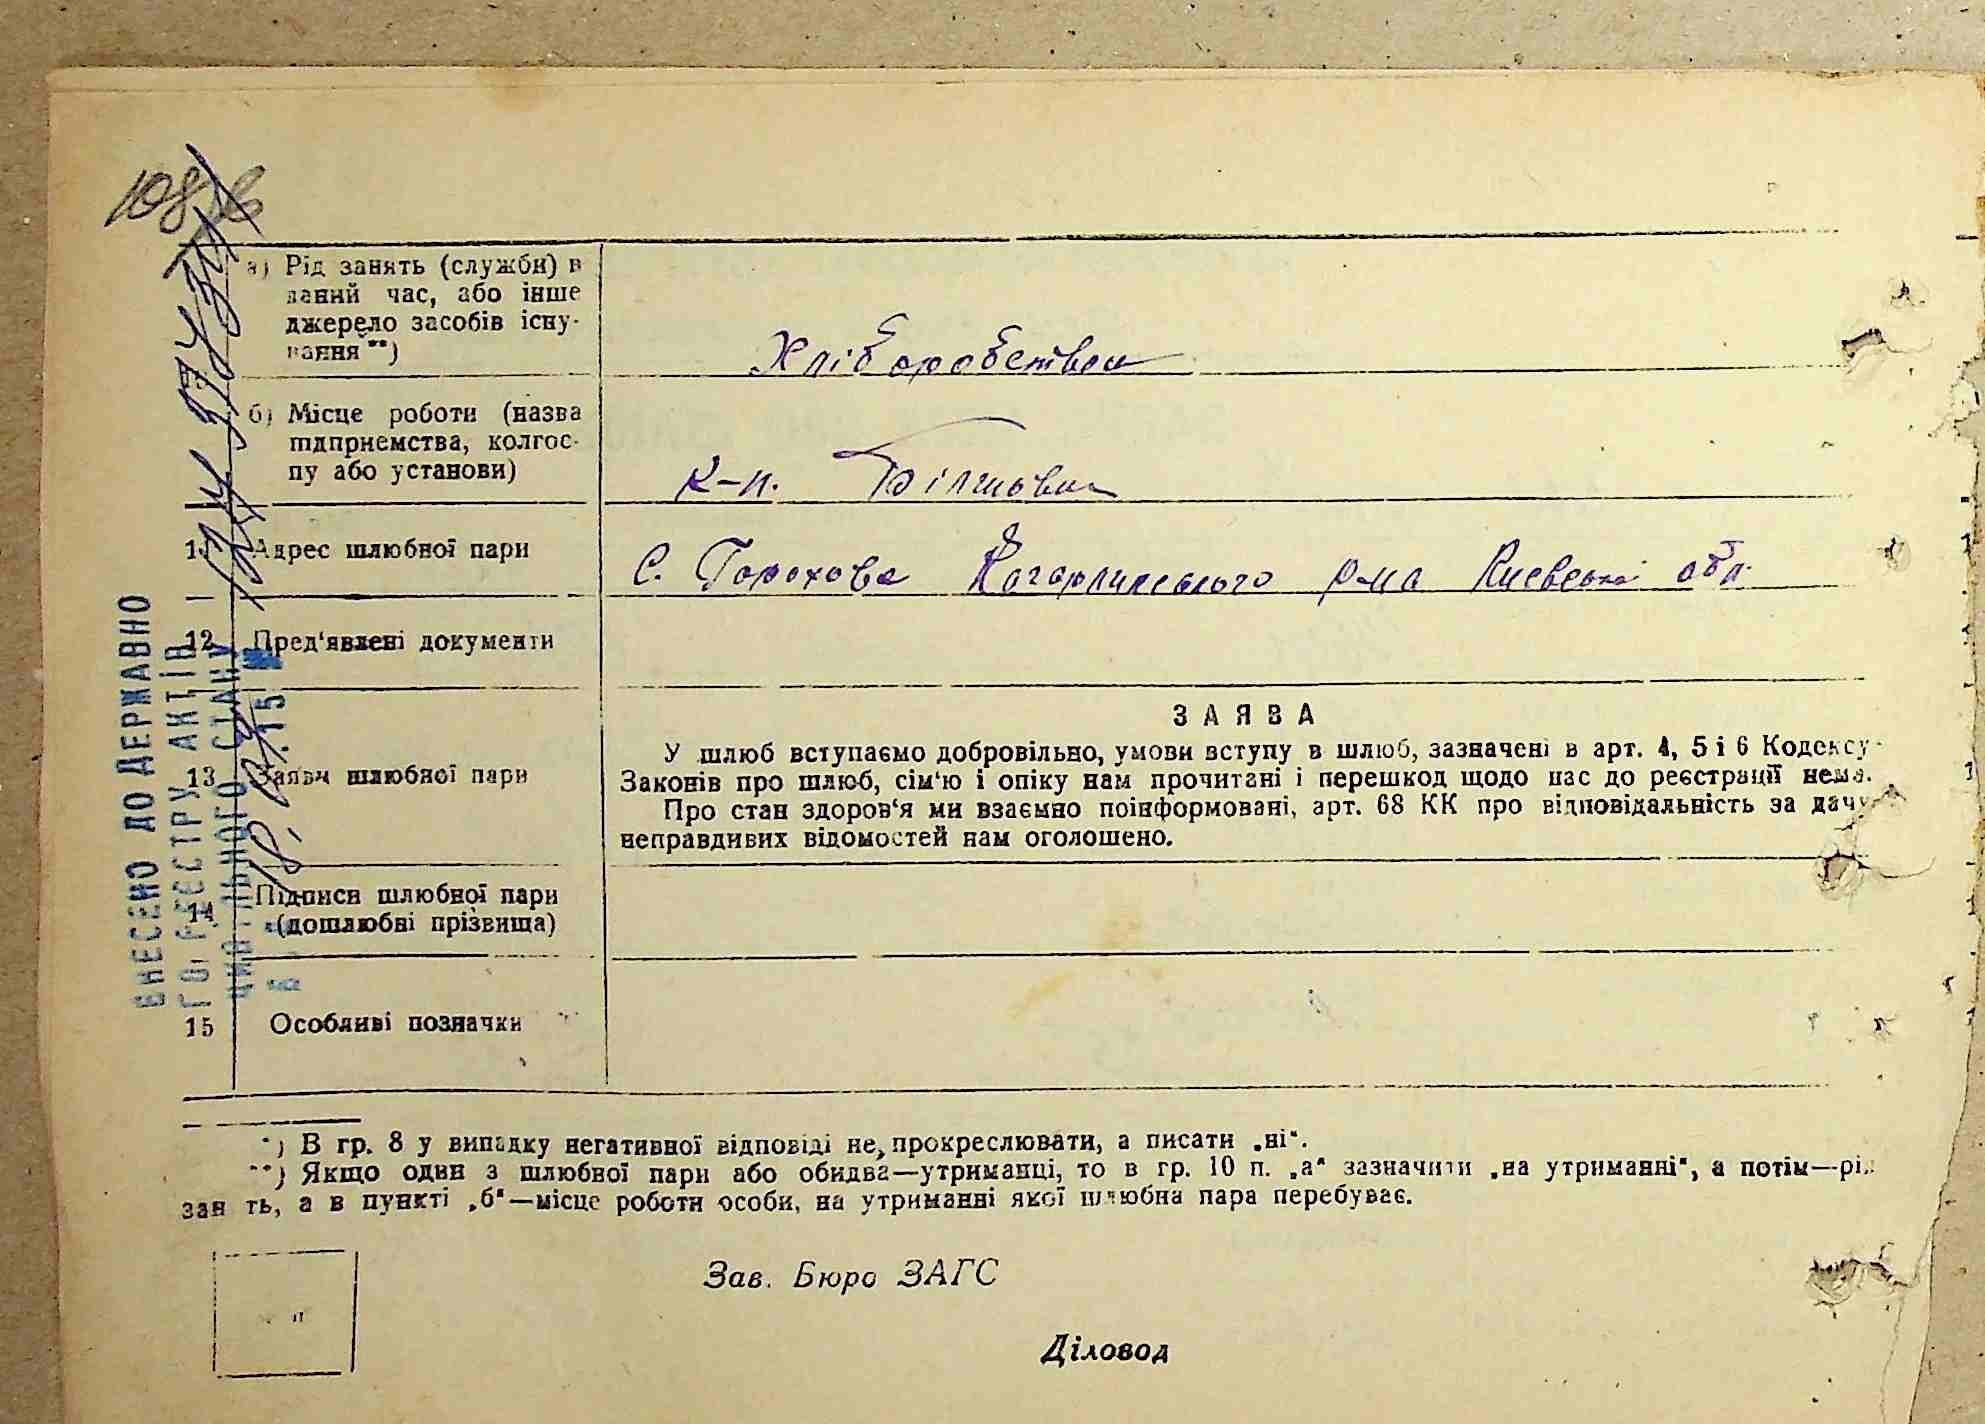 108
а) Рід занять (служби) в
даний час, або інше
джерело засобів існу-
вання **)
Хліборобство
б) Місце роботи (назва
підприємства, колгос-
пу або установи)
к-п.
11 Адрес шлюбної пари
С. Горохове Кагарлицького р-на Київської обл.
12 Пред‘явлені документи
13 Заяви шлюбної пари
ЗАЯВА
У шлюб вступаємо добровільно, умови вступу в шлюб, зазначені в арт. 4, 5 і 6 Кодексу
Законів про шлюб, сім‘ю і опіку нам прочитані і перешкод щодо нас до реєстрації нема.
Про стан здоров‘я ми взаємно поінформовані, арт. 68 КК про відповідальність за дачу
неправдивих відомостей нам оголошено.
14 Підписи шлюбної пари
(дошлюбні прізвища)
15 Особливі позначки
ВНЕСЕНО ДО ДЕРЖАВНО
ГО РЕЄСТРУ АКТІВ
ЦИВІЛЬНОГО СТАНУ
*) В гр. 8 у випадку негативної відповіді не прокреслювати, а писати „ні“.
**) Якщо один з шлюбної пари або обидва—утриманці, то в гр. 10 п. „а“ зазначити „на утриманні“, а потім—рід
занять, а в пункті „б“—місце роботи особи, на утриманні якої шлюбна пара перебуває.
Зав. Бюро ЗАГС
Діловод